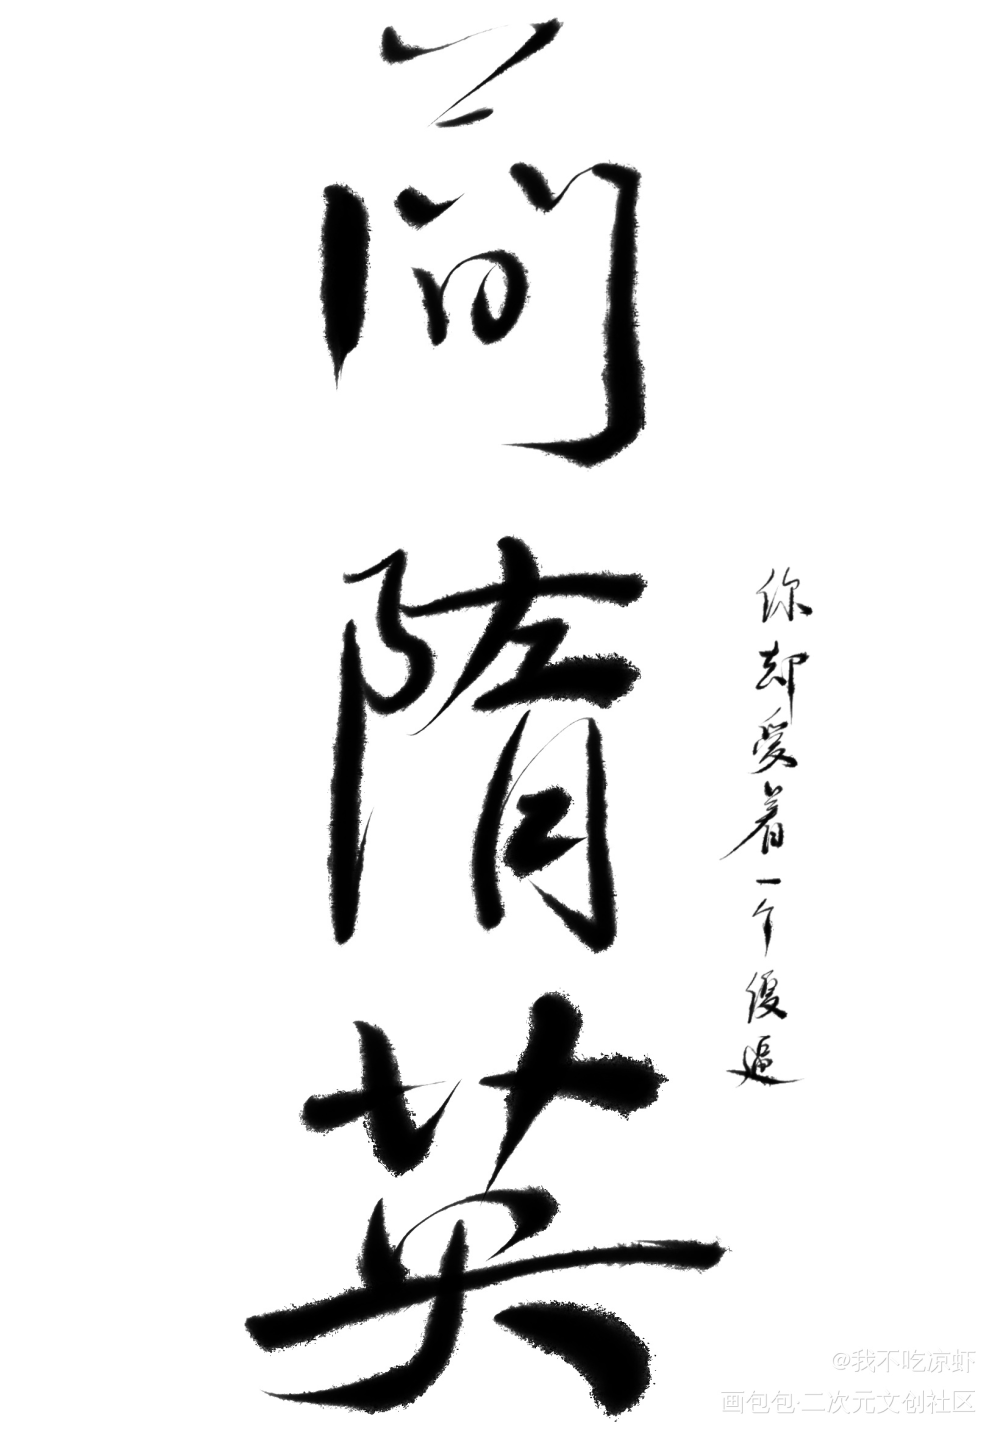 简隋英
你却爱着一个傻逼
@我不吃凉虾
画包包·二次元文创社区